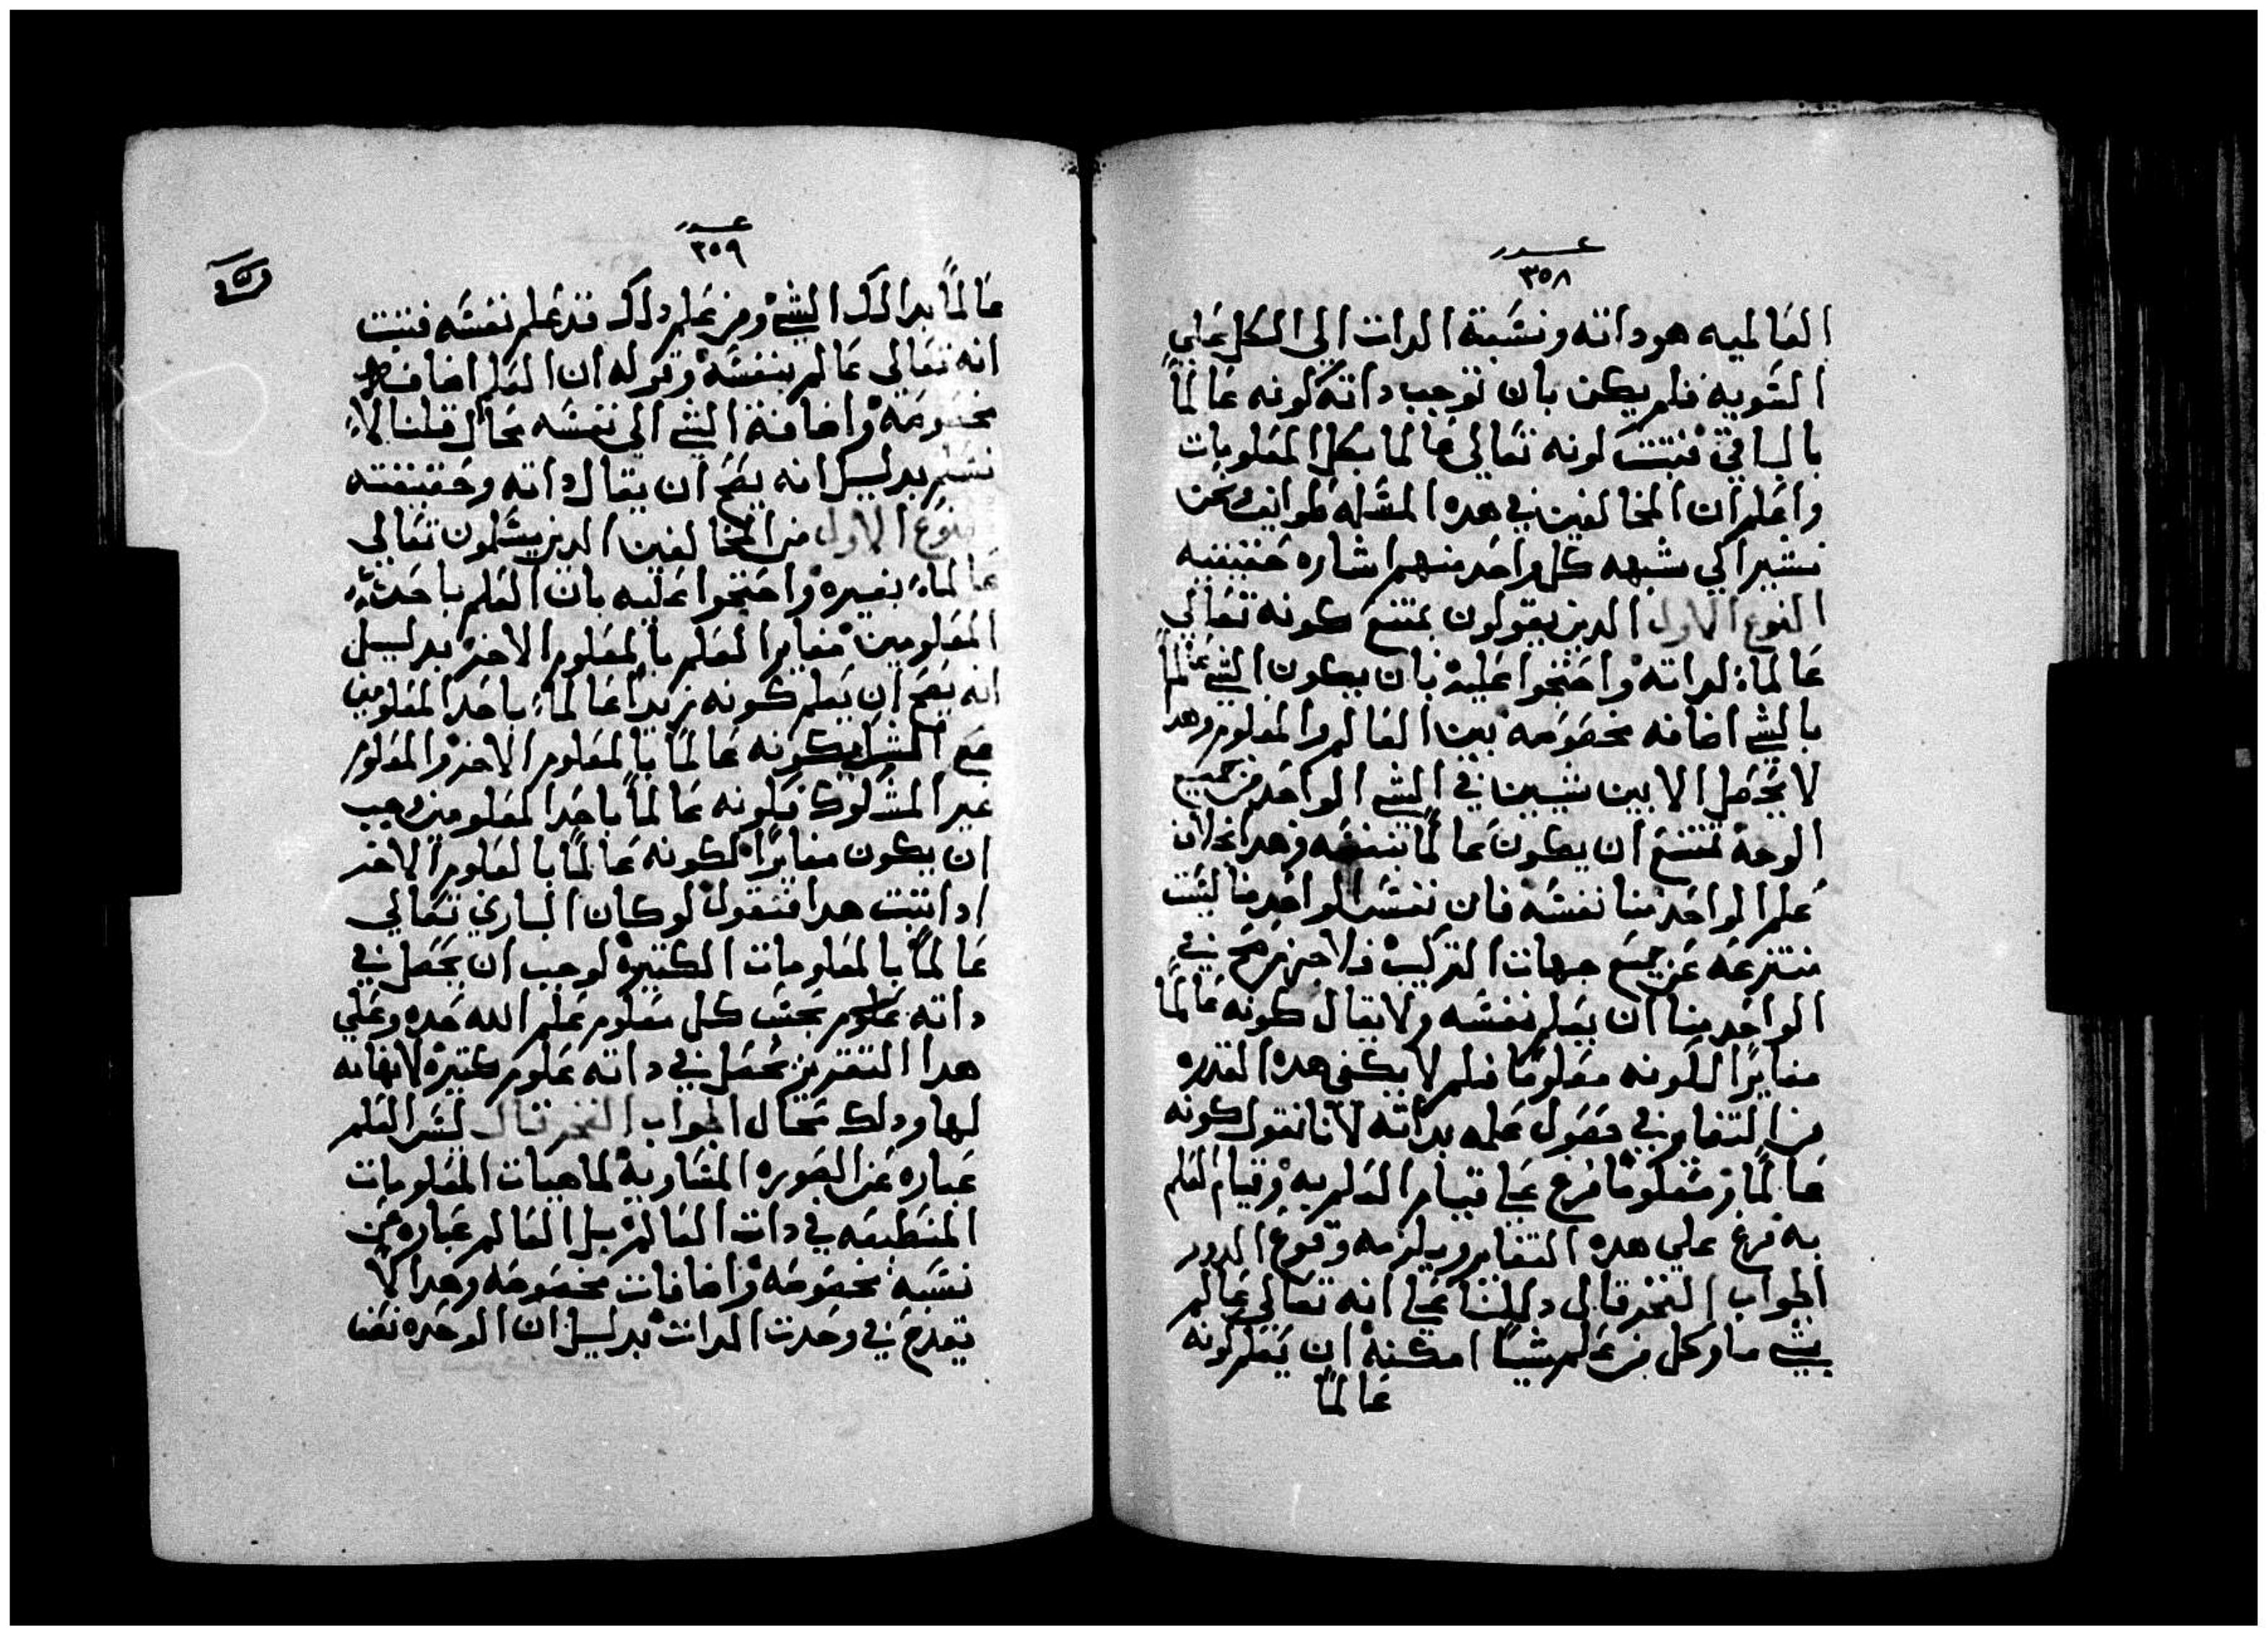 عدد
٣٥٨
العالميه هو داته ونسبة الدات الي الكل علي
السويه فلم يكن بان توجب داته كونه عالماً
بالباقي فتبت كونه تعالي عالما بكل المعلومات
واعلم ان المخالفين في هده المسله طوايف ونحن
نشير الي شبهه كل واحد منهم اشاره حقيقيه
النوع الاول الدين يقولون يمتنع كونه تعالي
عالماً لداته واحتجوا عليه بان يكون الشي عالماً
بالشي اضافه مخصوصه بين العالم والمعلوم وهدا
لا يحصل الا بين شيين في الشي الواحد من جميع
الوجه تمتنع ان يكون عالماً بنفسه وهدا بخلاف
علم الواحد منا نفسه فان نفس الواحد منا ليست
منتزعه عن جميع جهات التركيب فلا جرم صح في
الواحد منا ان يعلم نفسه ولا يقال كونه عالماً
مغايراً لكونه معلوماً فلم لا يكفي هده القدره
من التغاير في حصول علمه بداته لانا نقول كونه
عالماً ومعلوماً فرع علي قيام العلم به وقيام العلم
به فرع علي هده التغاير ويلزمه وقوع الدور
الجواب الفخر قال دللنا علي انه تعالي عالم
بشي ما وكل من علم شياً امكنه ان يعلم كونه
عالماً
عدد
٣٥٩
عالماً بدالك الشي ومن علم دلك فقد علم نفسه فتبت
انه تعالي عالم بنفسه وقوله ان العلم اضافه
مخصوصه واضافة الشي الي نفسه محال قلنا لا
نسلم بدليل انه يصح ان يقال داته وحقيقته
النوع الاول من المخالفين الدين يسلمون تعالي
عالماً بغيره واحتجوا عليه بان العلم باحد
المعلومين مغاير العلم بالمعلوم الاخر بدليل
انه يصح ان يعلم كونه زيداً عالماً باحد المعلومين
مع الشك بكونه عالماً بالمعلوم الاخر والمعلوم
غير المشكوك فكونه عالماً باحد المعلومين وجب
ان يكون مغايراً لكونه عالماً بالمعلوم الاخر
ادا تبت هدا فنقول لو كان الباري تعالي
عالماً بالمعلومات الكتيره لوجب ان يحصل في
داته علوم بحسب كل معلوم علم الله حده وعلي
هدا التقرير يحصل في داته علوم كتيره لا نهايه
لها ودلك محال الجواب الفخر قال ليس العلم
عباره عن الصوره المساويه لماهيات المعلومات
المنطبعه في دات العالم بل العالم عباره عن
نسبة مخصوصه واضافات مخصوصه وهدا لا
يقدح في وحدت الدات بدليل ان الوحده نصف